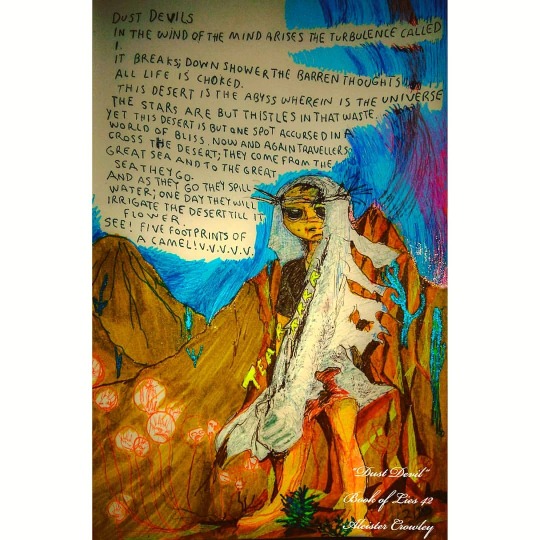 DUST DEVILS
IN THE WIND OF THE MIND ARISES THE TURBULENCE CALLED
I.
IT BREAKS; DOWN SHOWER THE BARREN THOUGHTS
ALL LIFE IS CHOKED.
THIS DESERT IS THE ABYSS WHEREIN IS THE UNIVERSE
THE STARS ARE BUT THISTLES IN THAT WASTE.
YET THIS DESERT IS BUT ONE SPOT ACCURSED IN A
WORLD OF BLISS. NOW AND AGAIN TRAVELLERS
CROSS THE DESERT; THEY COME FROM THE
GREAT SEA AND TO THE GREAT
SEA THEY GO.
AND AS THEY GO THEY SPILL
WATER; ONE DAY THEY WILL
IRRIGATE THE DESERT TILL IT
FLOWER.
SEE! FIVE FOOTPRINTS OF
A CAMEL! V.V.V.V.V.
"Dust Devil"
Book of Lies 42
Aleister Crowley